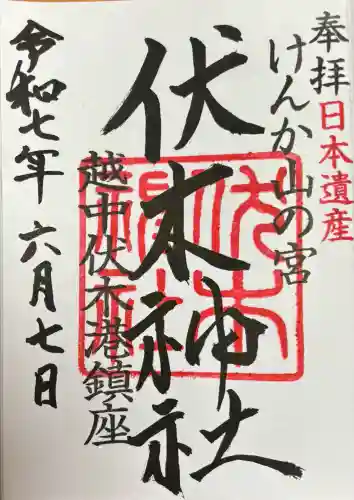 奉拝
日本遺産
けんか山の宮
伏木神社
越中伏木港鎮座
令和七年 六月七日
伏木神社